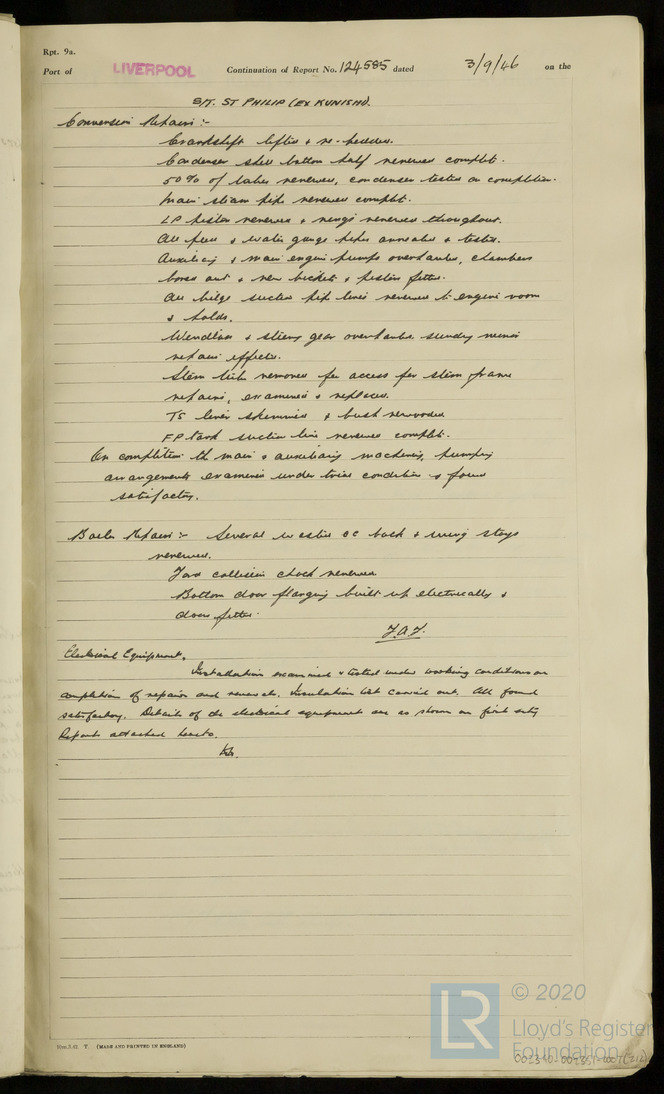 Rpt. 9a.
Port of LIVERPOOL Continuation of Report No. 124585 dated 3/9/46 on the
S/T. ST PHILIP (EX KUNISHI).
Conversion Repairs :-
Crankshaft lifted & re-bedded.
Condenser shell bottom half renewed complete.
50% of tubes renewed, condenser tested on completion.
Main steam pipe renewed complete.
LP piston renewed & rings renewed throughout.
All feed & water gauge pipes annealed & tested.
Auxiliary & main engine pumps overhauled, chambers
bored out & new buckets & pistons fitted.
All bilge suction pipe lines renewed to engine room
& holds.
Windlass & steering gear overhauled sundry minor
repairs effected.
Stern tube removed for access for stern frame
repairs, examined & replaced.
TS liner skimmed & bush rewooded
FP tank suction line renewed complete.
On completion the main & auxiliary machinery, pumping
arrangements examined under trial conditions & found
satisfactory.
Boiler Repairs :- Several wasted CC back & wing stays
renewed.
Ford collision chock renewed
Bottom door flanging built up electrically &
doors fitted.
Electrical Equipment.
Installation examined & tested under working conditions on
completion of repairs and renewals. Insulation test carried out. All found
satisfactory. Details of the electrical equipment are as shown on first entry
Report attached hereto.
(MADE AND PRINTED IN ENGLAND)
LR
© 2020
Lloyd's Register
Foundation